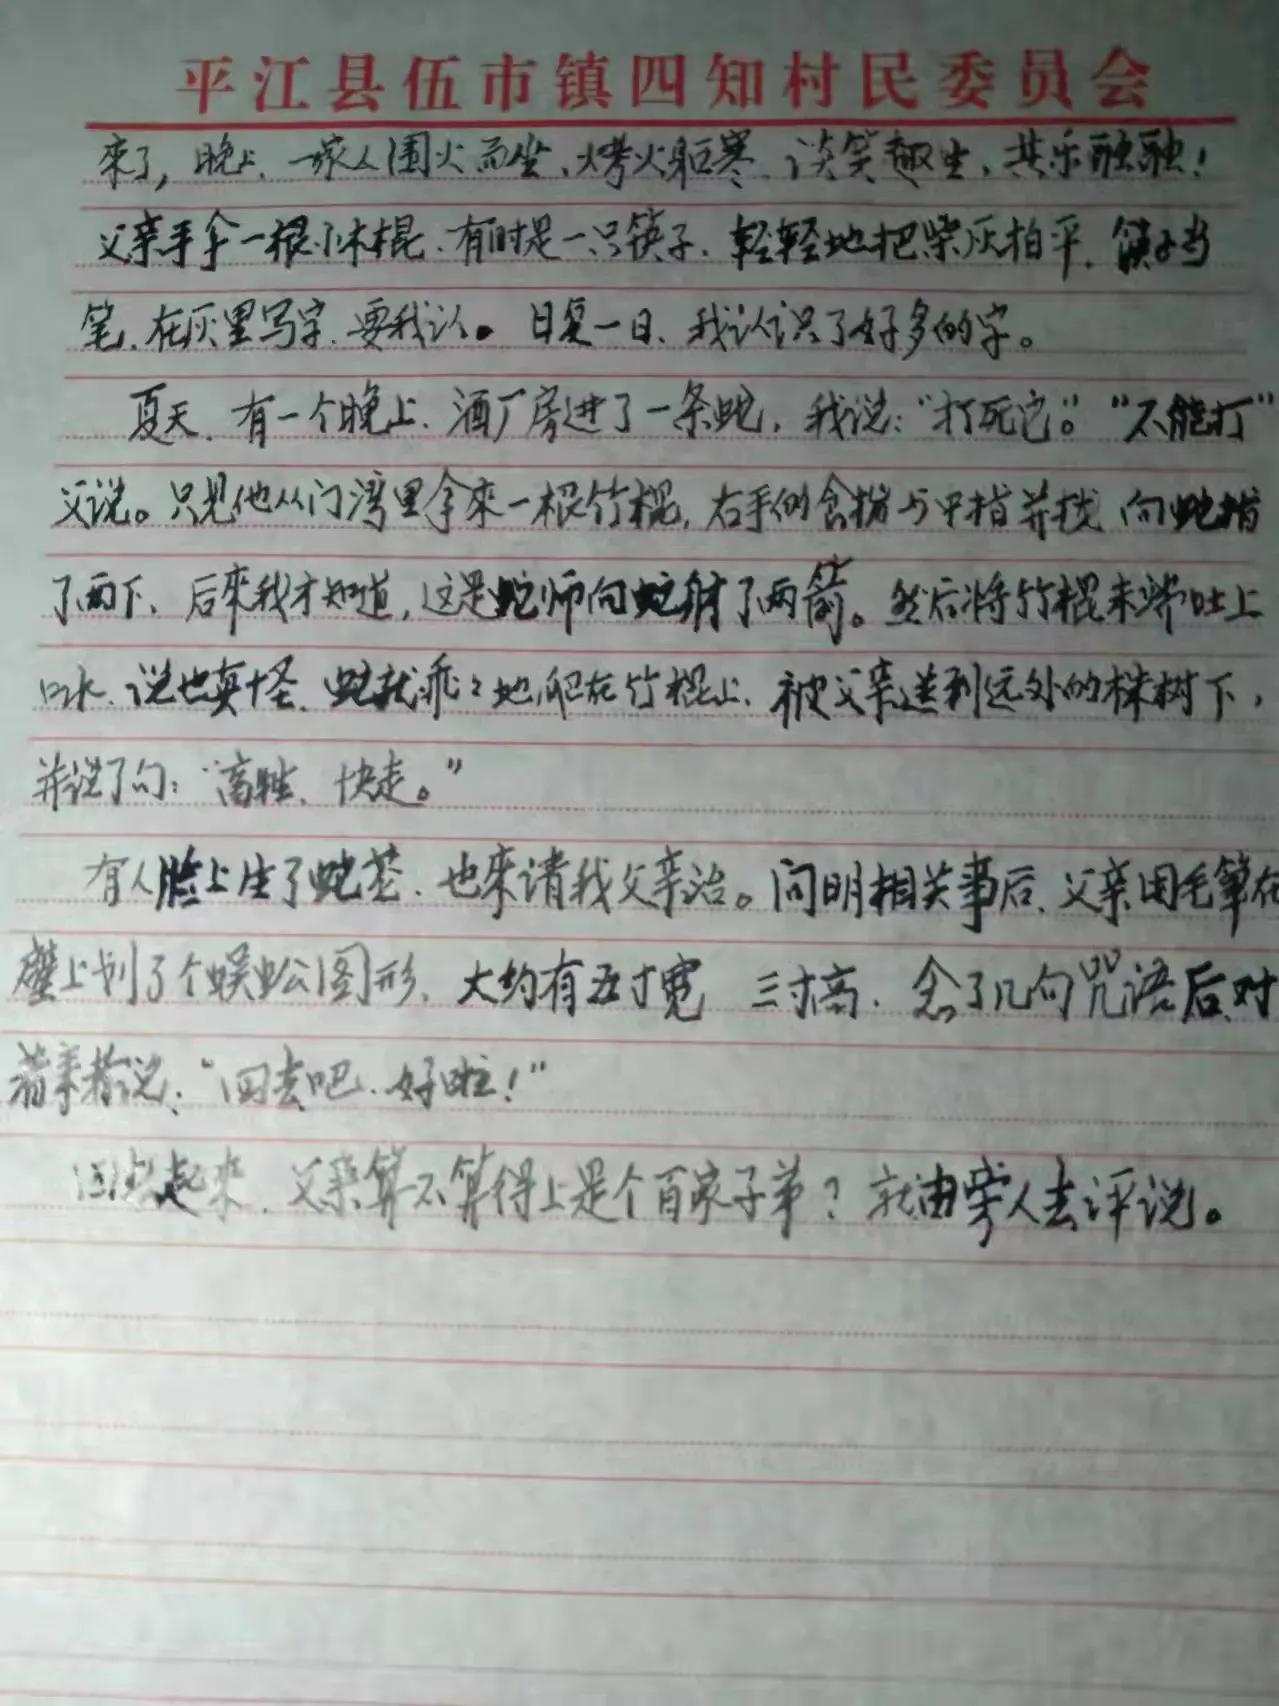 平江县伍市镇四知村民委员会
来了，晚上、一家人围火而坐、烤火驱寒、谈笑趣生、其乐融融！
父亲手拿一根小木棍、有时是一只筷子、轻轻地把柴灰拍平、筷子当
笔、在灰里写字、要我认。日复一日、我认识了好多的字。
夏天、有一个晚上、酒厂房进了一条蛇，我说：“打死它。”“不能打”
父说。只见他从门湾里拿来一根竹棍，右手的食指与中指并拢 向蛇指
了两下、后来我才知道，这是蛇师向蛇射了两箭。然后将竹棍末端吐上
口水、说也真怪、蛇就乖々地爬在竹棍上、被父亲送到远处的株树下，
并说了句：“高、快走。”
有人脸上生了蛇、也来请我父亲治。问明相关事后、父亲用毛笔在
壁上划了个蜈蚣图形、大约有五寸宽 三寸高、念了几句咒语后、对
着来者说：“回去吧、好啦！”
起来、父亲算不算得上是个百家子弟？就由旁人去评说。